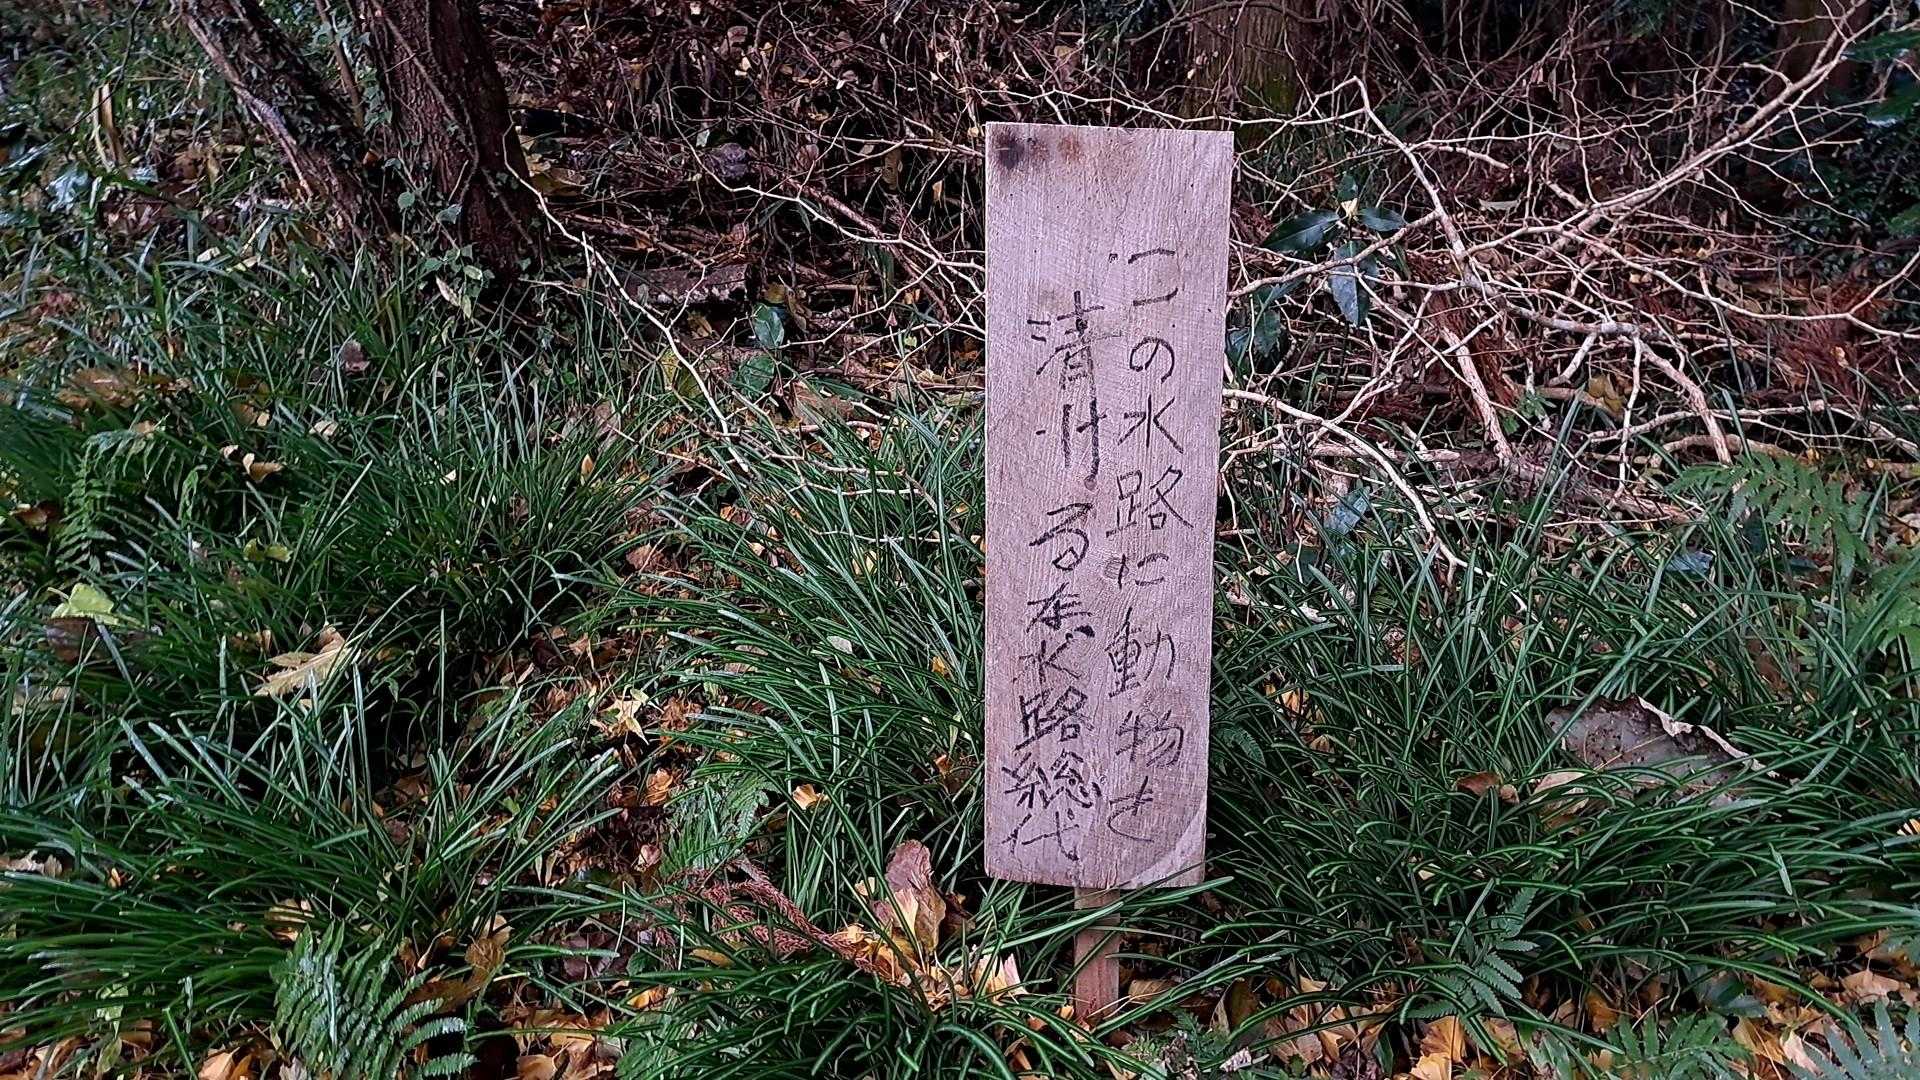 この水路に動物を
清けるな水路総代